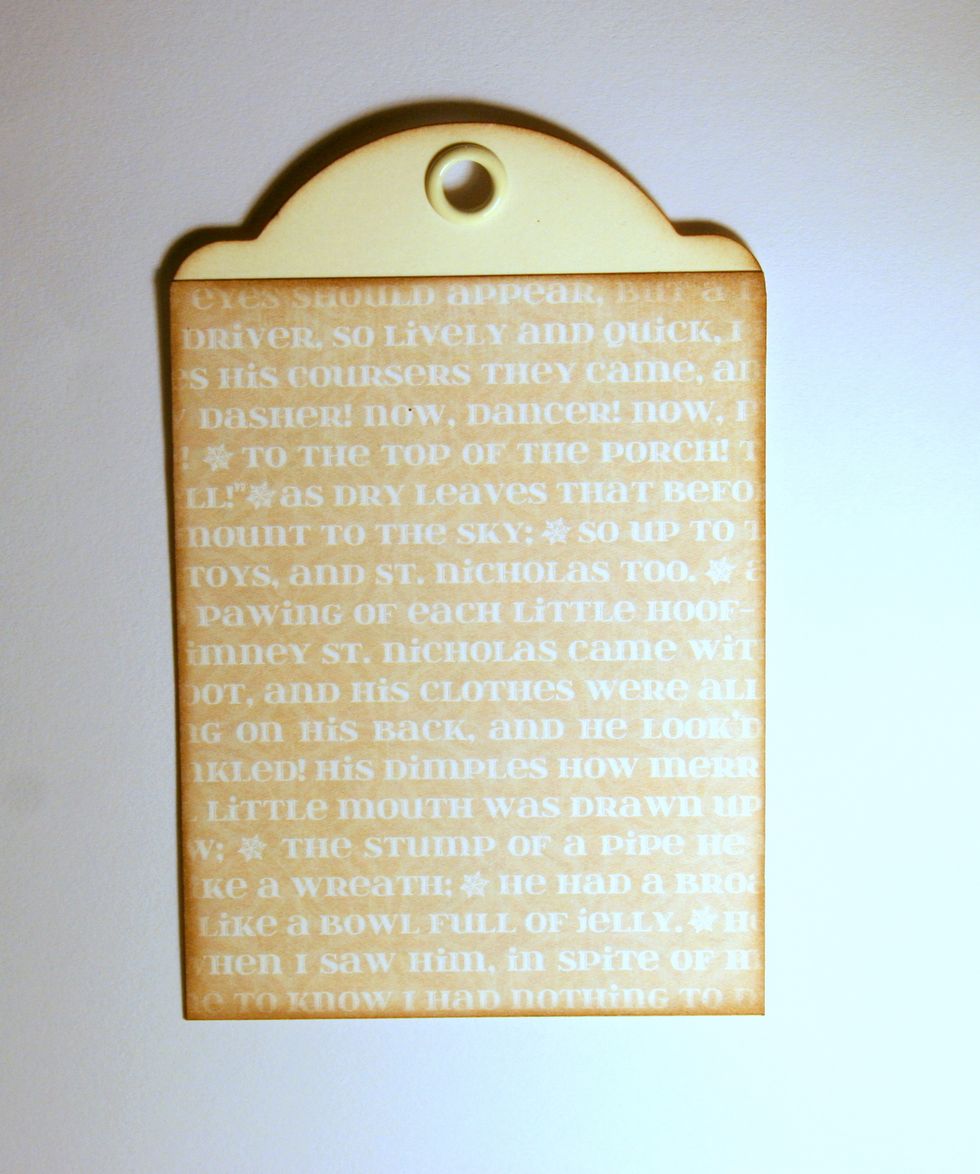 eyes should appear, but a
driver, so lively and quick, I
es his coursers they came, an
Dasher! now, Dancer! now, P
! to the top of the porch! T
ll!" as dry leaves that befo
mount to the sky; so up to t
toys, and St. Nicholas too. a
pawing of each little hoof-
imney St. Nicholas came wit
oot, and his clothes were all
ng on his back, and he look'd
nkled! his dimples how merr
little mouth was drawn up
w; the stump of a pipe he
ke a wreath; he had a broa
like a bowl full of jelly. He
when I saw him, in spite of m
e to know I had nothing to